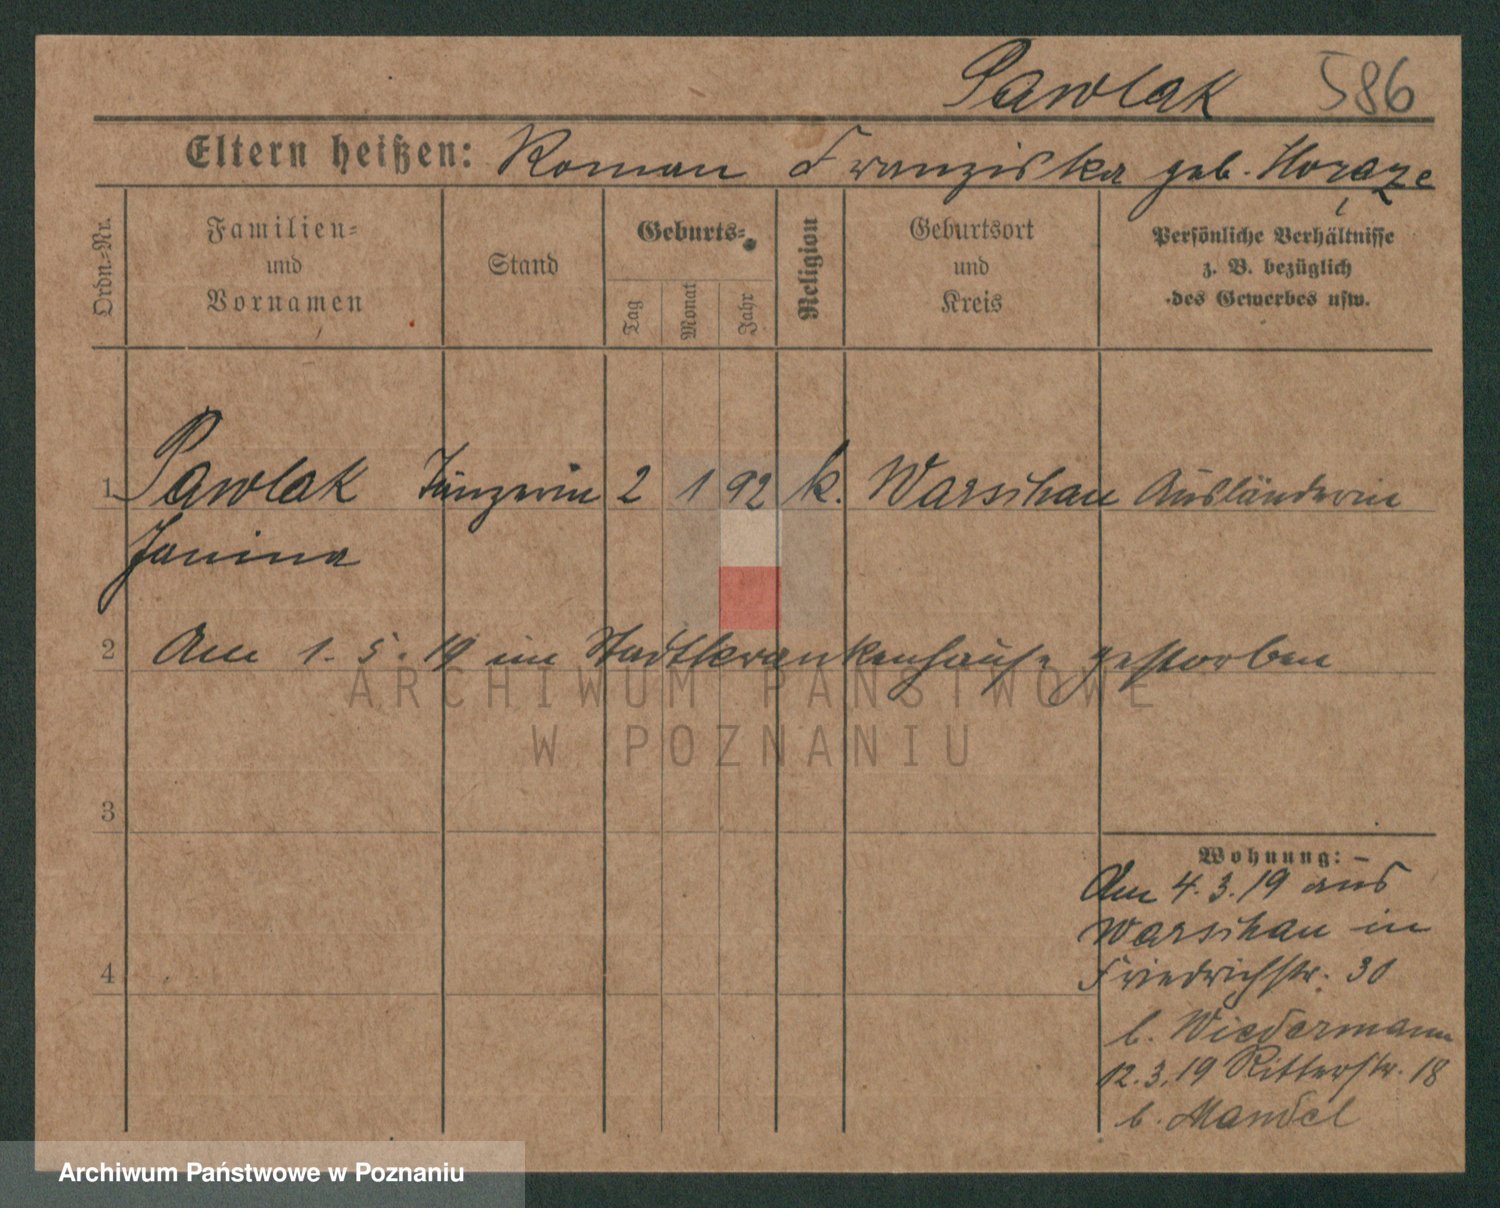 Pawlak 586
Eltern heißen: Roman Franziska geb.
Ordn.-Nr.
Familien-
und
Vornamen
Stand
Geburts-
Tag
Monat
Jahr
Religion
Geburtsort
und
Kreis
Persönliche Verhältnisse
z. B. bezüglich
des Gewerbes usw.
1 Pawlak Tänzerin 2 1 92 k. Warschau Ausländerin
Janina
2 Am 1. 5. 19 im Stadtkrankenhause gestorben
3
4
Wohnung:
Am 4. 3. 19 aus
Warschau in
Friedrichstr. 30
b. Wiedermann
12. 3. 19 Ritterstr. 18
b. Mandel
ARCHIWUM PAŃSTWOWE
W POZNANIU
Archiwum Państwowe w Poznaniu